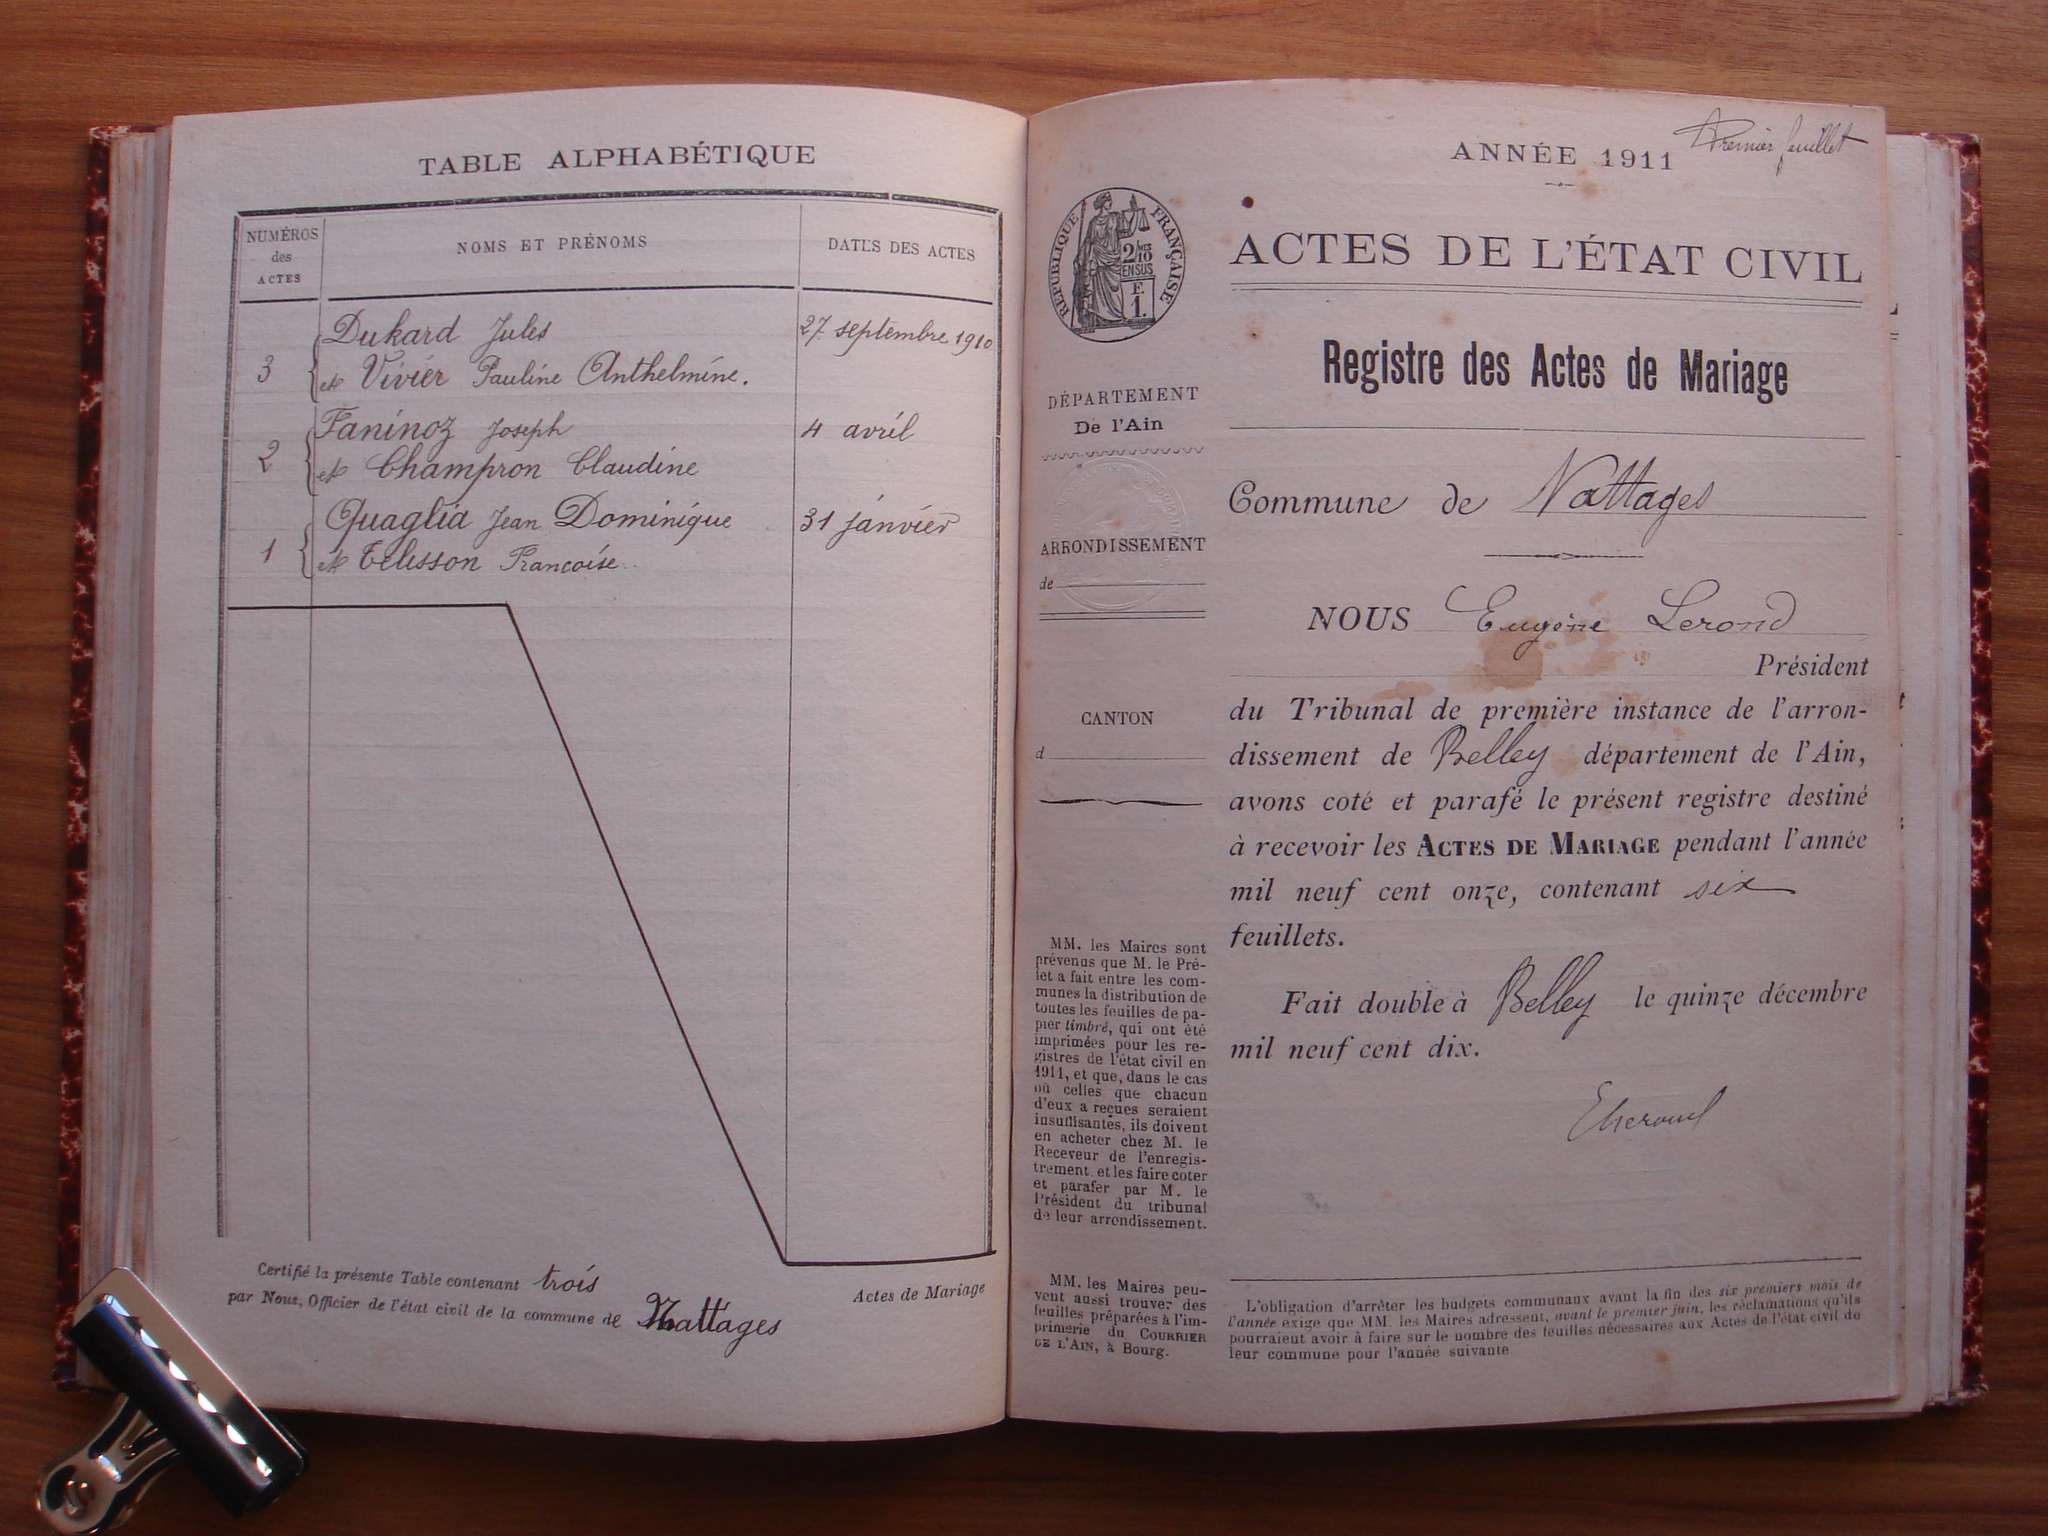 TABLE ALPHABÉTIQUE
NUMÉROS
des
ACTES
NOMS ET PRÉNOMS
DATES DES ACTES
Dukard Jules
27 septembre 1910
3
et Vivier Pauline Anthelmine.
Faninoz Joseph
4 avril
2
et Champron Claudine
Quaglia Jean Dominique
31 janvier
1
et Telisson Françoise
Certifié la présente Table contenant trois
Actes de Mariage
par Nous, Officier de l'état civil de la commune de Nattages
Premier feuillet
ANNÉE 1911
RÉPUBLIQUE FRANÇAISE
2/10
EN SUS
E
1.
ACTES DE L'ÉTAT CIVIL
Registre des Actes de Mariage
DÉPARTEMENT
De l'Ain
ARRONDISSEMENT
de
CANTON
d
Commune de Nattages
NOUS Eugène Lerond
Président
du Tribunal de première instance de l'arron-
dissement de Belley département de l'Ain,
avons coté et parafé le présent registre destiné
à recevoir les ACTES DE MARIAGE pendant l'année
mil neuf cent onze, contenant six
feuillets.
Fait double à Belley le quinze décembre
mil neuf cent dix.
MM. les Maires sont
prévenus que M. le Pré-
fet a fait entre les com-
munes la distribution de
toutes les feuilles de pa-
pier timbré, qui ont été
imprimées pour les re-
gistres de l'état civil en
1911, et que, dans le cas
où celles que chacun
d'eux a reçues seraient
insuffisantes, ils doivent
en acheter chez M. le
Receveur de l'enregis-
trement, et les faire coter
et parafer par M. le
Président du tribunal
de leur arrondissement.
MM. les Maires peu-
vent aussi trouver des
feuilles préparées à l'im-
primerie du COURRIER
DE L'AIN, à Bourg.
L'obligation d'arrêter les budgets communaux avant la fin des six premiers mois de
l'année exige que MM. les Maires adressent, avant le premier juin, les réclamations qu'ils
pourraient avoir à faire sur le nombre des feuilles nécessaires aux Actes de l'état civil de
leur commune pour l'année suivante